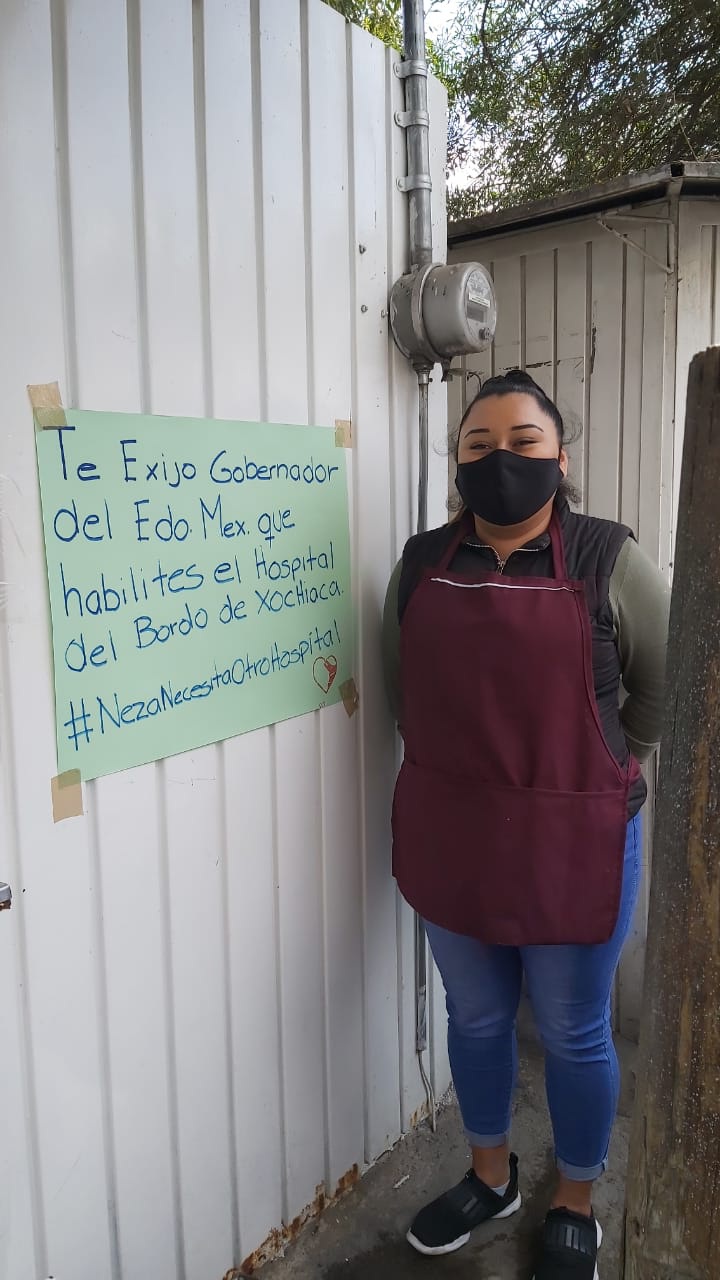 Te Exijo Gobernador
del Edo. Mex. que
habilites el Hospital
del Bordo de Xochiaca.
#NezaNecesitaOtroHospital